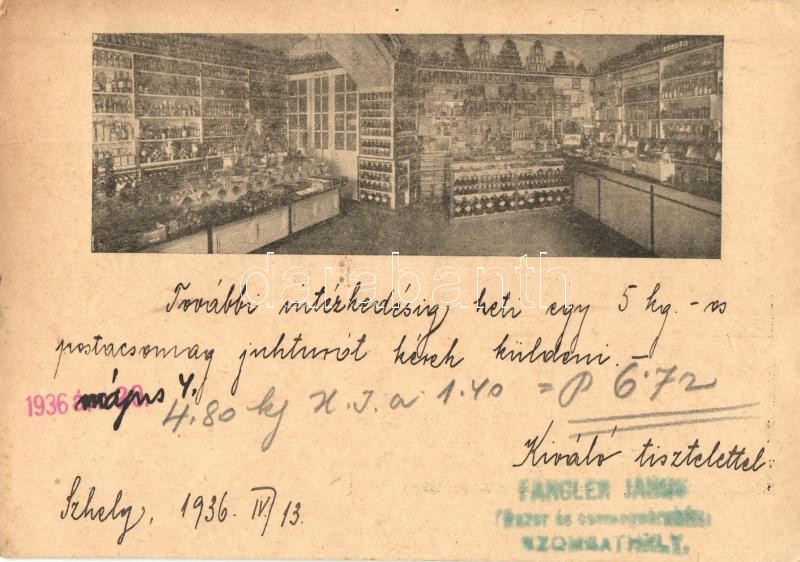 darabanth
További intézkedésig heti egy 5 kg.-os
postacsomag juhturót kérek küldeni. –
1936 május 4.
4.80 kg H. T. a 1.40 = P 6.72
Kiváló tisztelettel:
Szhely, 1936. IV/13.
FANGLER JÁNOS
fűszer és csemege
SZOMBATHELY.